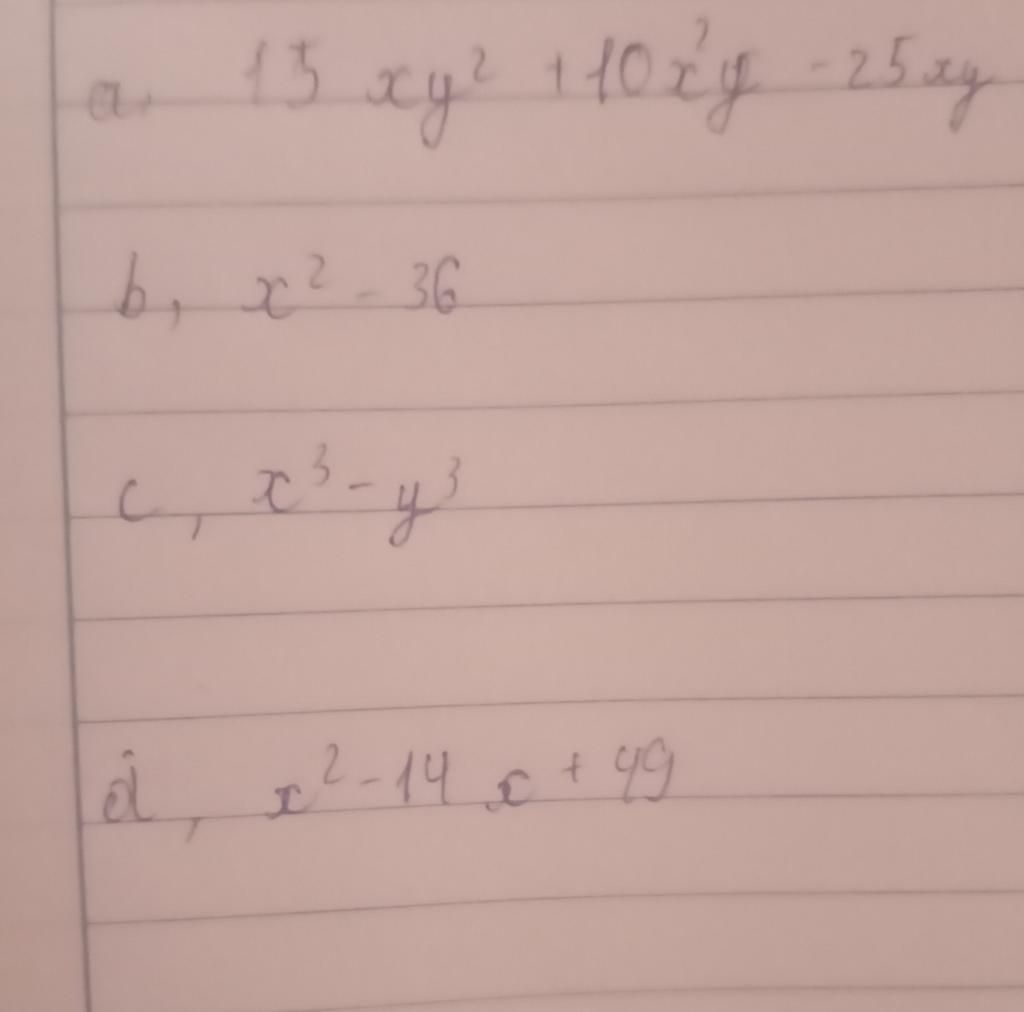 a. 15 xy² + 10x²y - 25xy
b, x² - 36
c, x³ - y³
d, x² - 14 x + 49